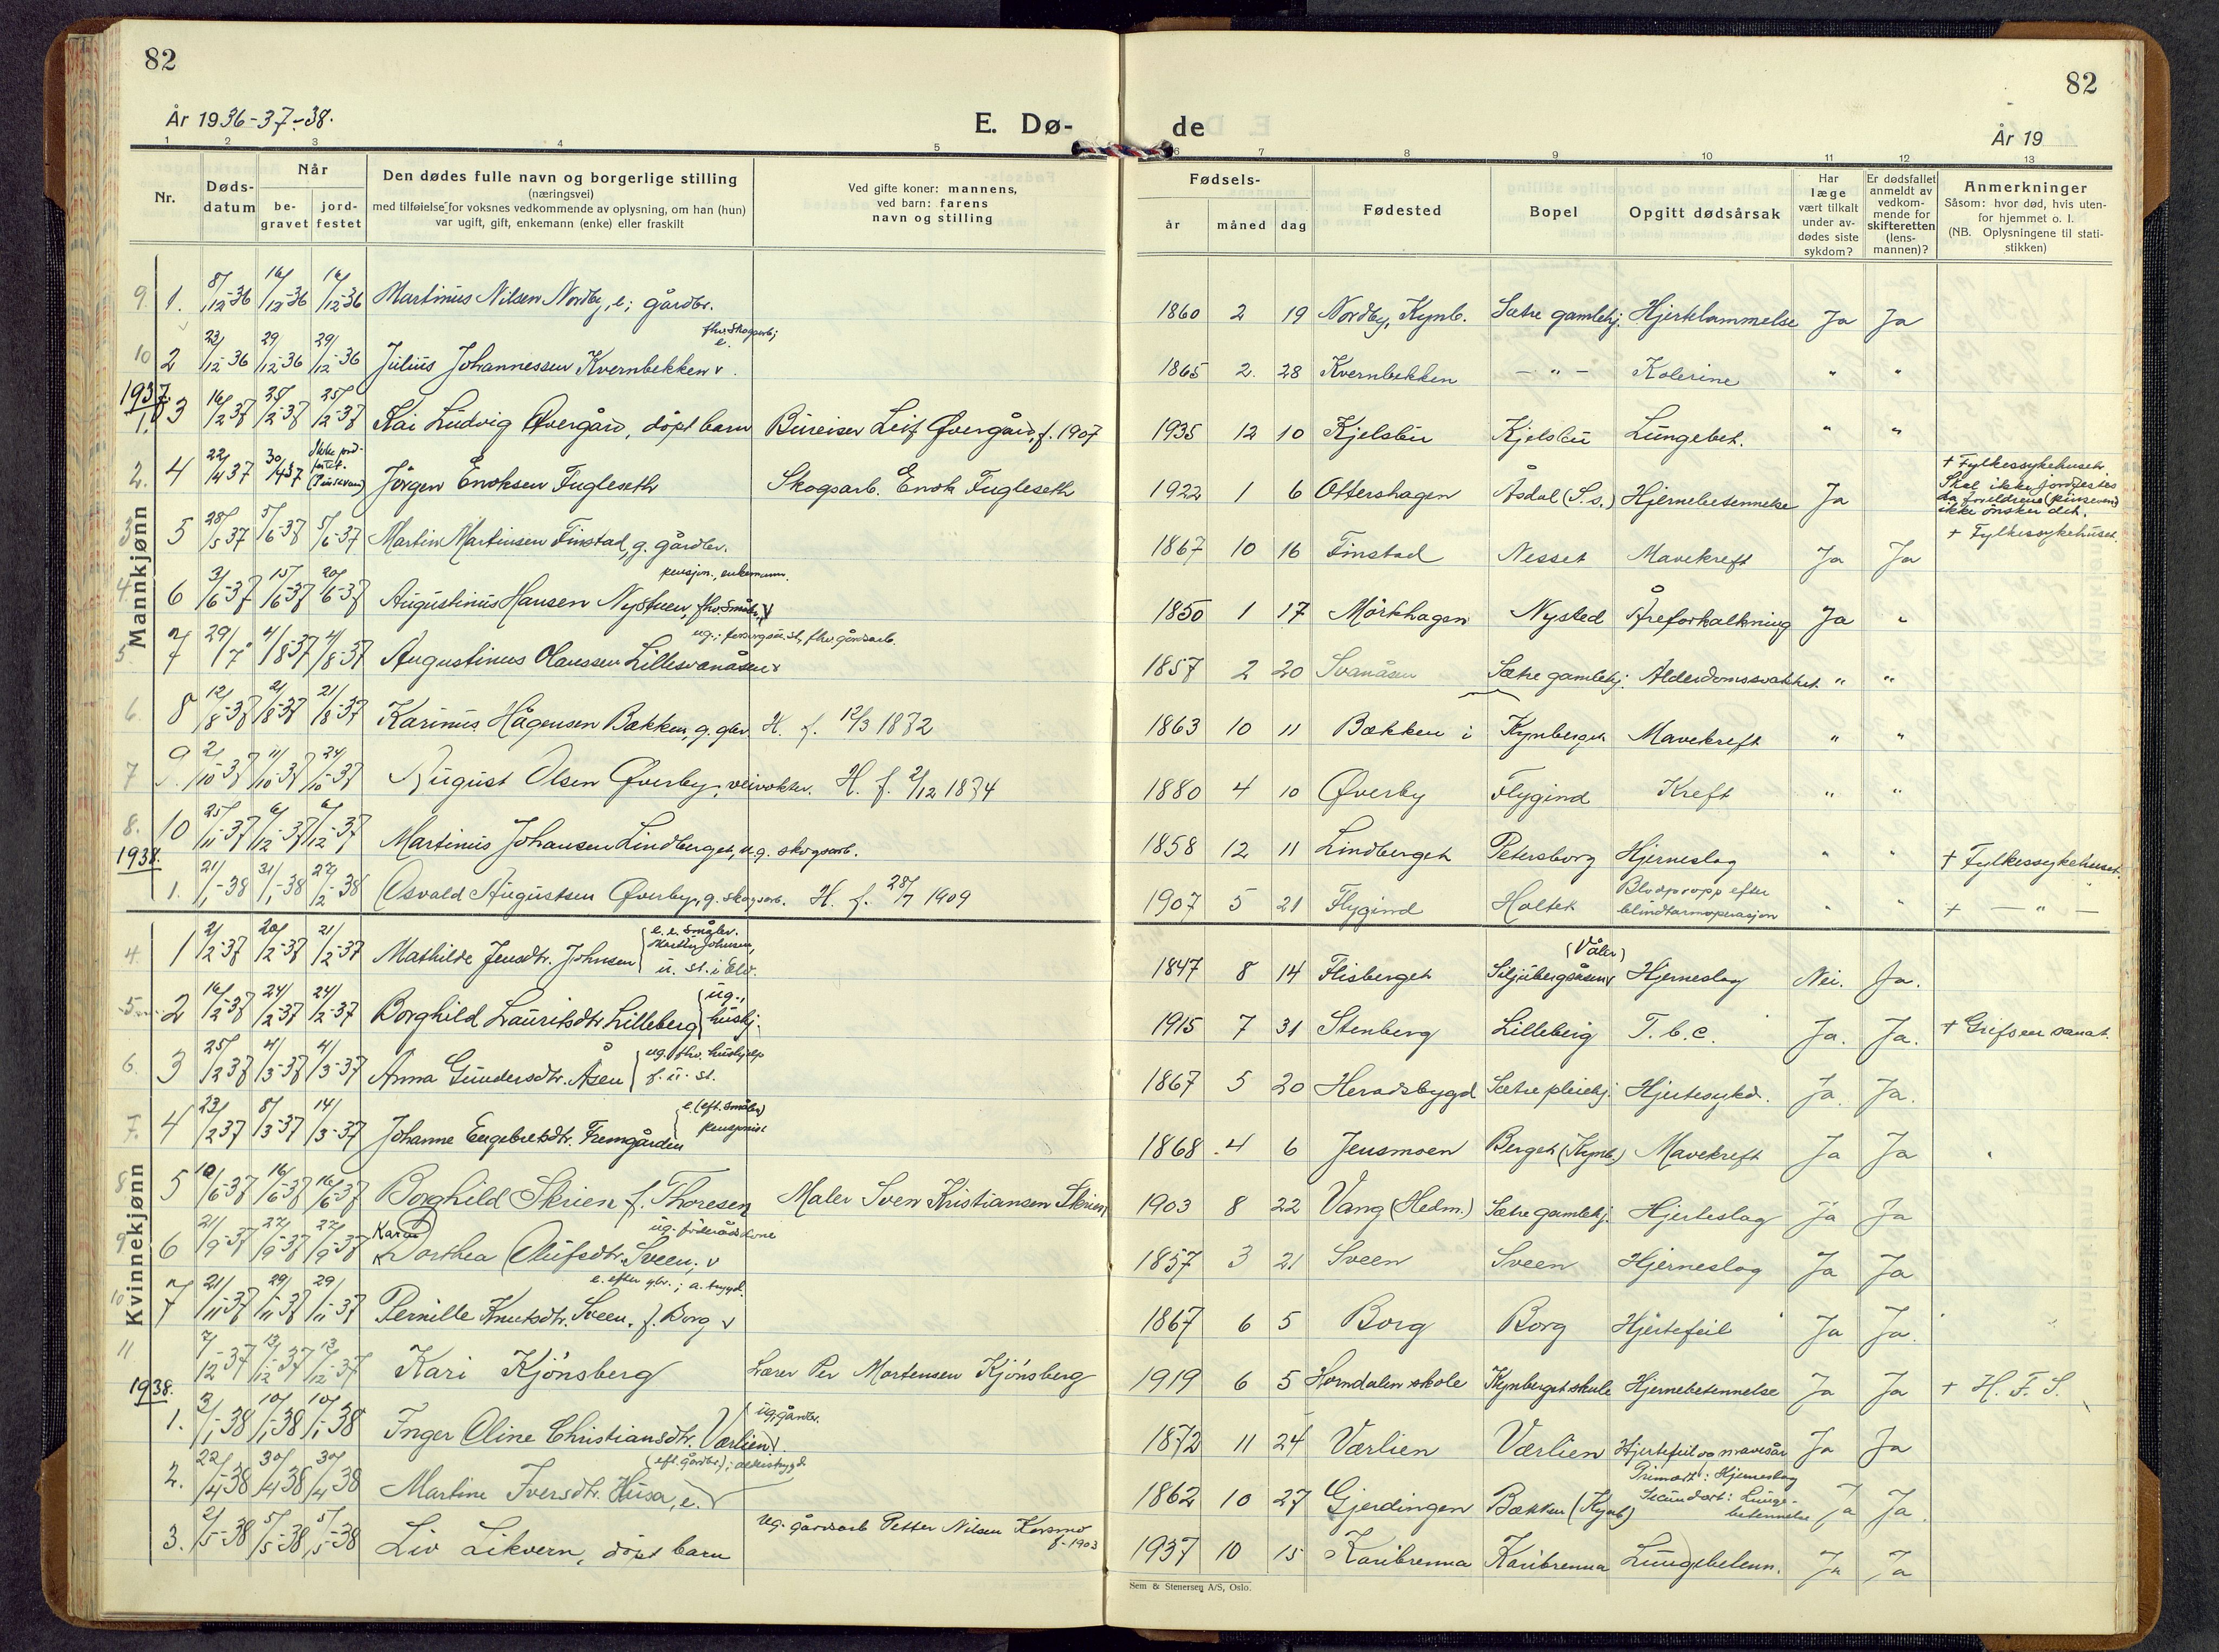 82
82
År 1936-37-38.
E. Dø-
de
År 19
1 2 3 4 5 6 7 8 9 10 11 12 13
Nr.
Døds-
datum
Når
be-
gravet
jord-
festet
Den dødes fulle navn og borgerlige stilling
(næringsvei)
med tilføielse for voksnes vedkommende av oplysning, om han (hun)
var ugift, gift, enkemann (enke) eller fraskilt
Ved gifte koner: mannens,
ved barn: farens
navn og stilling
Fødsels-
år måned dag
Fødested
Bopel
Opgitt dødsårsak
Har
læge
vært tilkalt
under av-
dødes siste
sykdom?
Er dødsfallet
anmeldt av
vedkom-
mende for
skifteretten
(lens-
mannen)?
Anmerkninger
Såsom: hvor død, hvis uten-
for hjemmet o. l.
(NB. Oplysningene til stati-
stikken)
Mannkjønn
9. 1. 8/12-36 16/12-36 16/12-36 Martinus Nilsen Nordby, e; gårdbr. 1860 2 19 Nordby, Kynb. Sætre gamlehj. Hjertelammelse Ja Ja
fhv. skogsarb;
e.
10 2 23/12 36 29/12 36 29/12 36 Julius Johannessen Kvernbekken v. 1865 2. 28 Kvernbekken - " - Kolerine " "
1937.
1. 3 16/2 37 25/2-37 25/2-37 Kai Ludvig Øvergård, döpt barn Bureiser Leif Øvergård, f. 1907 1935 12 10 Kjelsbu Kjelsbu Lungebet. " "
2. 4 22/4 37 30/4 37 Ikke jord-
festet.
(Pinsevenn) Jörgen Enoksen Fugleseth Skogsarb. Enok Fugleseth 1922 1 6 Ottershagen Åsdal (S.s.) Hjernebetennelse Ja
+ Fylkessykehuset.
Skal ikke jordfestes
da foreldrene (pinsevenn)
ikke önsker det.
3 5 28/5 37 5/6-37 5/6-37 Martin Martinsen Finstad, g. gårdbr. 1867 10 16 Finstad Nesset Mavekreft Ja Ja + Fylkessykehuset.
pensjon., enkemann.
4 6 3/6-37 15/6-37 20/6-37 Augustinus Hansen Nystuen, fhv. småbr. v 1850 1 17 Mörkhagen Nysted Åreforkalkning Ja "
ug.; forsorgsu.st, fhv. gårdsarb.
5. 7 29/7 4/8 37 4/8-37 Augustinus Olaussen Lillesvanåsen v 1857 2 20 Svanåsen Sætre gamlehj. Alderdomssvakhet " "
6. 8 12/8-37 21/8-37 21/8-37 Karinus Hågensen Bakken, g. gbr. H. f. 12/3 1872 1863 10 11 Bækken i Kynberget Mavekreft " "
7 9 2/10-37 11/10-37 24/10-37 August Olsen Øverby, veivokter. H. f. 2/12 1874 1880 4 10 Øverby Flygind Kreft " "
8. 10 25/11-37 6/12-37 6/12-37 Martinus Johansen Lindberget, ug. skogsarb. 1858 12 11 Lindberget Petersborg Hjerneslag " " + Fylkessykehuset.
1938.
1. 21/1-38 31/1-38 27/2-38 Osvald Augustsen Øverby, g. skogsarb. H. f. 28/7 1909 1907 5 21 Flygind Holtet Blodpropp efter
blindtarmoperasjon " " + - " -
Kvinnekjønn
4. 1 2/2-37 20/2-37 21/2-37 Mathilde Jensdtr. Johnsen e. e. småbr.
Martin Johnsen,
u. st. i Elv. 1847 8 14 Flisberget (Våler)
Siljubergåsen v Hjerneslag Nei. Ja.
5 2 16/2-37 24/2-37 24/2-37 Borghild Lauritsdtr Lilleberg ug.,
hushj. 1915 7 31 Stenberg Lilleberg T.b.c. Ja. Ja. + Grefsen sanat.
6. 3 25/2 37 4/3-37 4/3-37 Anna Gundersdtr. Åsen ug. fhv. hushjelp
f. u. st. 1867 5 20 Heradsbygd Sætre pleiehj. Hjertesykd. Ja. Ja.
7. 4 23/2 37 8/3-37 14/3-37 Johanne Engebretsdtr. Fremgården e. (eft. småbr)
pensjonist 1868 4 6 Jensmoen Berget (Kynb.) Mavekreft Ja Ja
8 5 10/6-37 16/6-37 16/6-37 Borghild Skrien f. Thoresen Maler Sven Kristiansen Skrien 1903 8 22 Vang (Hedm.) Sætre gamlehj. Hjerteslag Ja Ja
Karen ug. föderådskone
9 6 21/9-37 27/9-37 27/9-37 Dorthea Olufsdtr. Sveen, v 1857 3 21 Sveen Sveen Hjerneslag Ja Ja
e. efter gbr.; a. trygd.
10 7 21/11-37 29/11-37 29/11-37 Pernille Knutsdtr. Sveen, f. Borg v 1867 6 5 Borg Borg Hjertefeil Ja Ja.
11 7/12-37 13/12-37 13/12-37 Kari Kjönsberg Lærer Per Mortensen Kjönsberg 1919 6 5 Horndalen skole Kynberget skule Hjernebetennelse Ja Ja + H. F. S.
1938.
1. 3/1-38 10/1-38 10/1-38 Inger Oline Christiansdtr. Værlien v. ug, gårdbr. 1872 11 24 Værlien Værlien Hjertefeil og mavesår Ja Ja
(eft. gårdbr.); alderstrygd
2. 22/4 38 30/4 38 30/4 38 Martine Iversdtr. Husa, e. v 1862 10 27 Gjerdingen Bækken (Kynb) Primært: Hjerneslag
Secundært: Lunge-
betennelse Ja Ja
3. 2/5-38 5/5-38 5/5-38 Liv Likvern, döpt barn Ug. gårdsarb Petter Nilsen Korsmo
f. 1903 1937 10 15 Karibrenna Karibrenna Lungebetenn. Ja Ja
Sem & Stenersen A/S, Oslo.